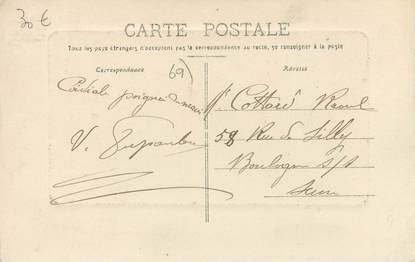 30 €
CARTE POSTALE
Tous les pays étrangers n'acceptent pas la correspondance au recto, se renseigner à la poste
Correspondance
69
Adresse
Cordiale poignée de main
V.
Mr Cottard Raoul
58 Rue de Silly
Boulogne s/s
Seine